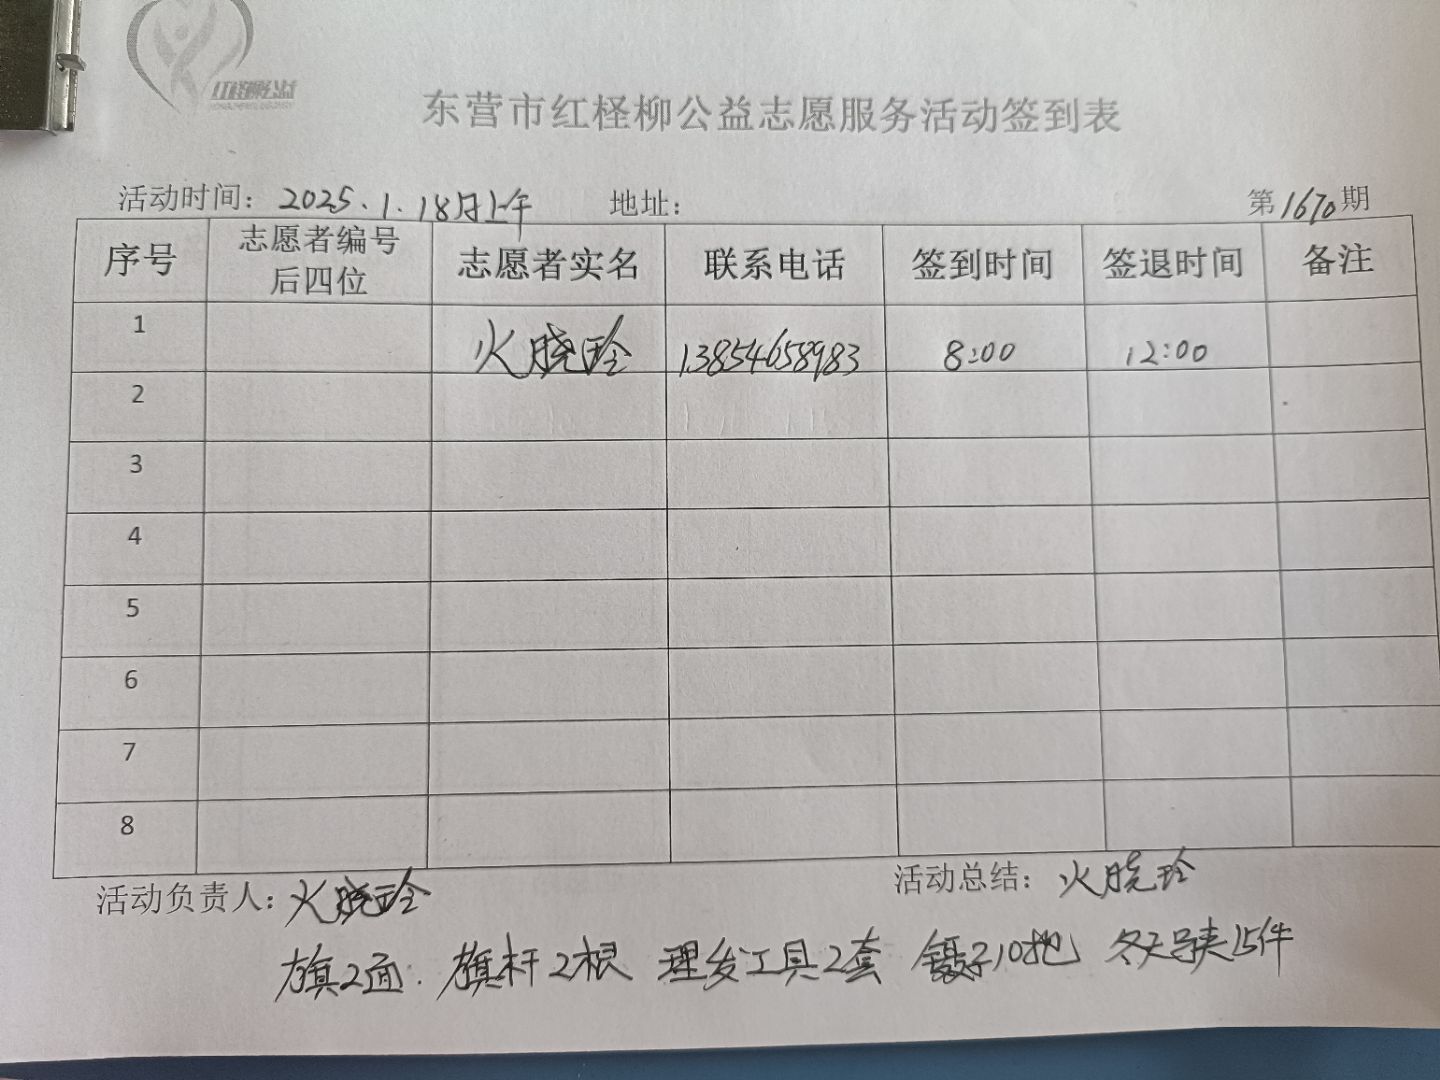 红柽柳公益
东营市红柽柳公益志愿服务活动签到表
活动时间：2025、1、18月上午 地址： 第1670期
序号 志愿者编号后四位 志愿者实名 联系电话 签到时间 签退时间 备注
1 火晓玲 13854658983 8:00 12:00
2
3
4
5
6
7
8
活动负责人：火晓玲 活动总结：火晓玲
旗2面 旗杆2根 理发工具2套 镊子10把 冬天马夹15件